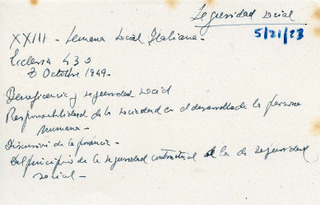 Seguridad social
5/21/23
XXIII - Semana Social Italiana -
Ecclesia 430
8 Octubre 1949.
Beneficencia y seguridad social
Responsabilidad de la sociedad en el desarrollo de la persona
humana -
Discursos de la
Del principio de la seguridad contractual al de seguridad
social -